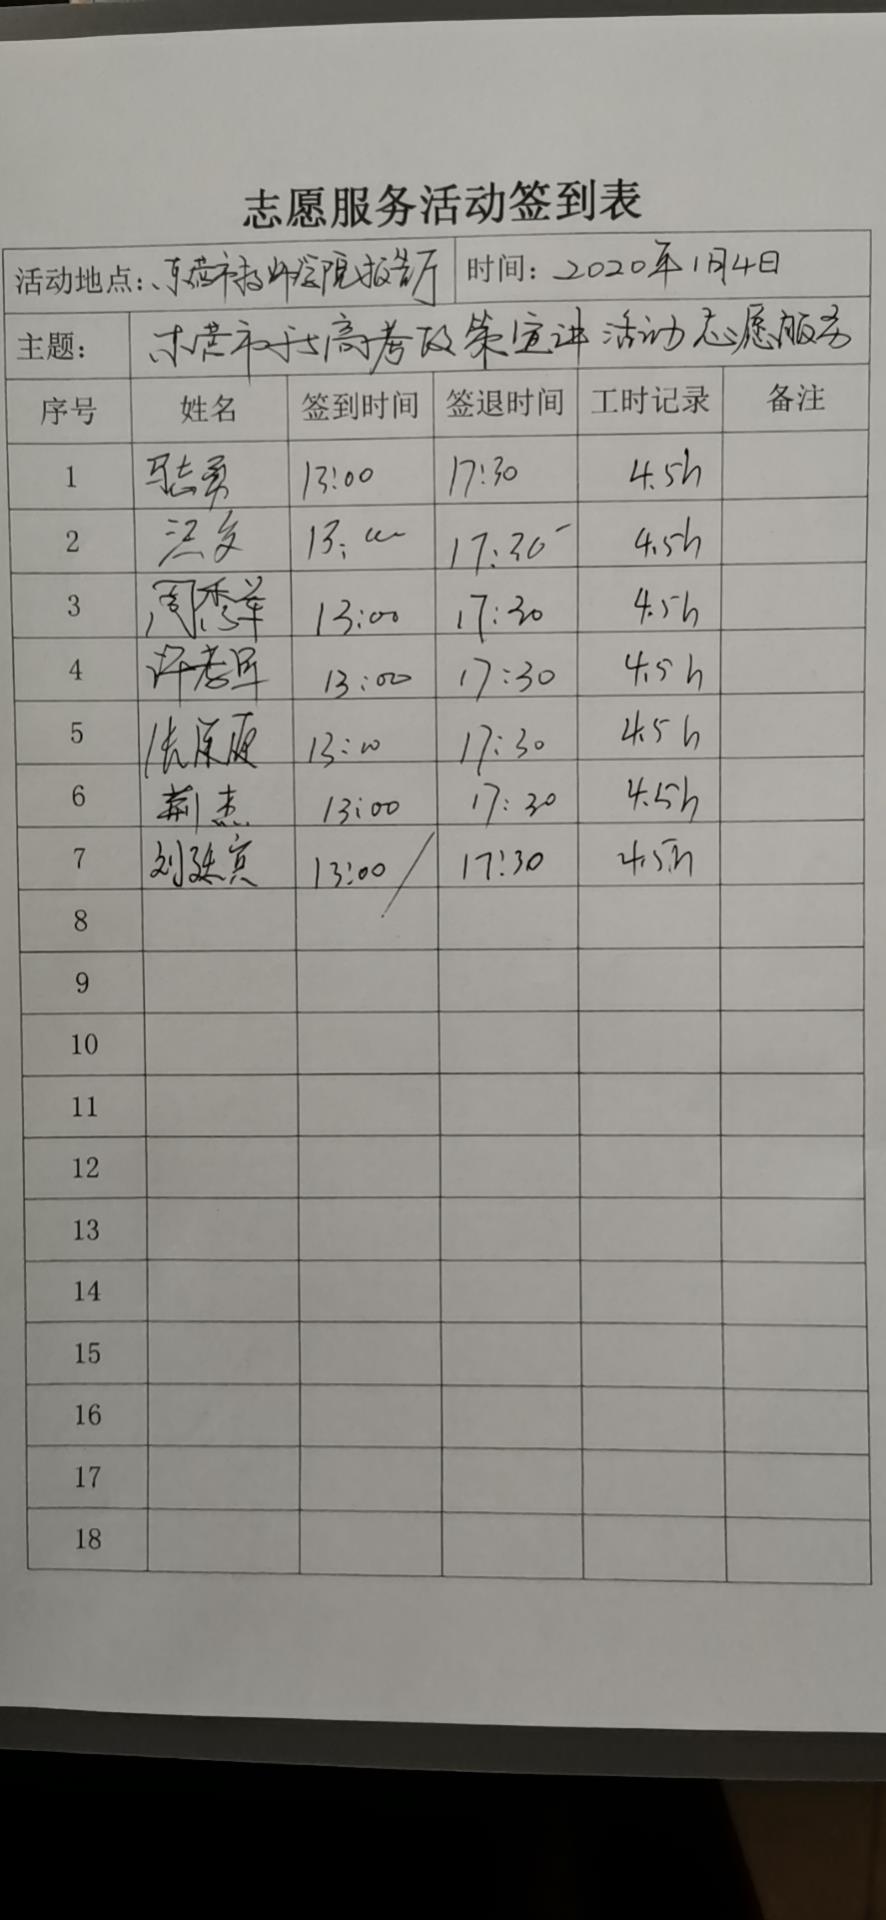 志愿服务活动签到表
活动地点:东营市技师学院报告厅 时间:2020年1月4日
主题: 东营市 高考政策宣讲活动志愿服务
序号 姓名 签到时间 签退时间 工时记录 备注
1 马志勇 13:00 17:30 4.5h
2 13:00 17:30 4.5h
3 周秀萍 13:00 17:30 4.5h
4 许孝军 13:00 17:30 4.5h
5 张原原 13:00 17:30 4.5h
6 荆杰 13:00 17:30 4.5h
7 刘廷宾 13:00 17:30 4.5h
8
9
10
11
12
13
14
15
16
17
18